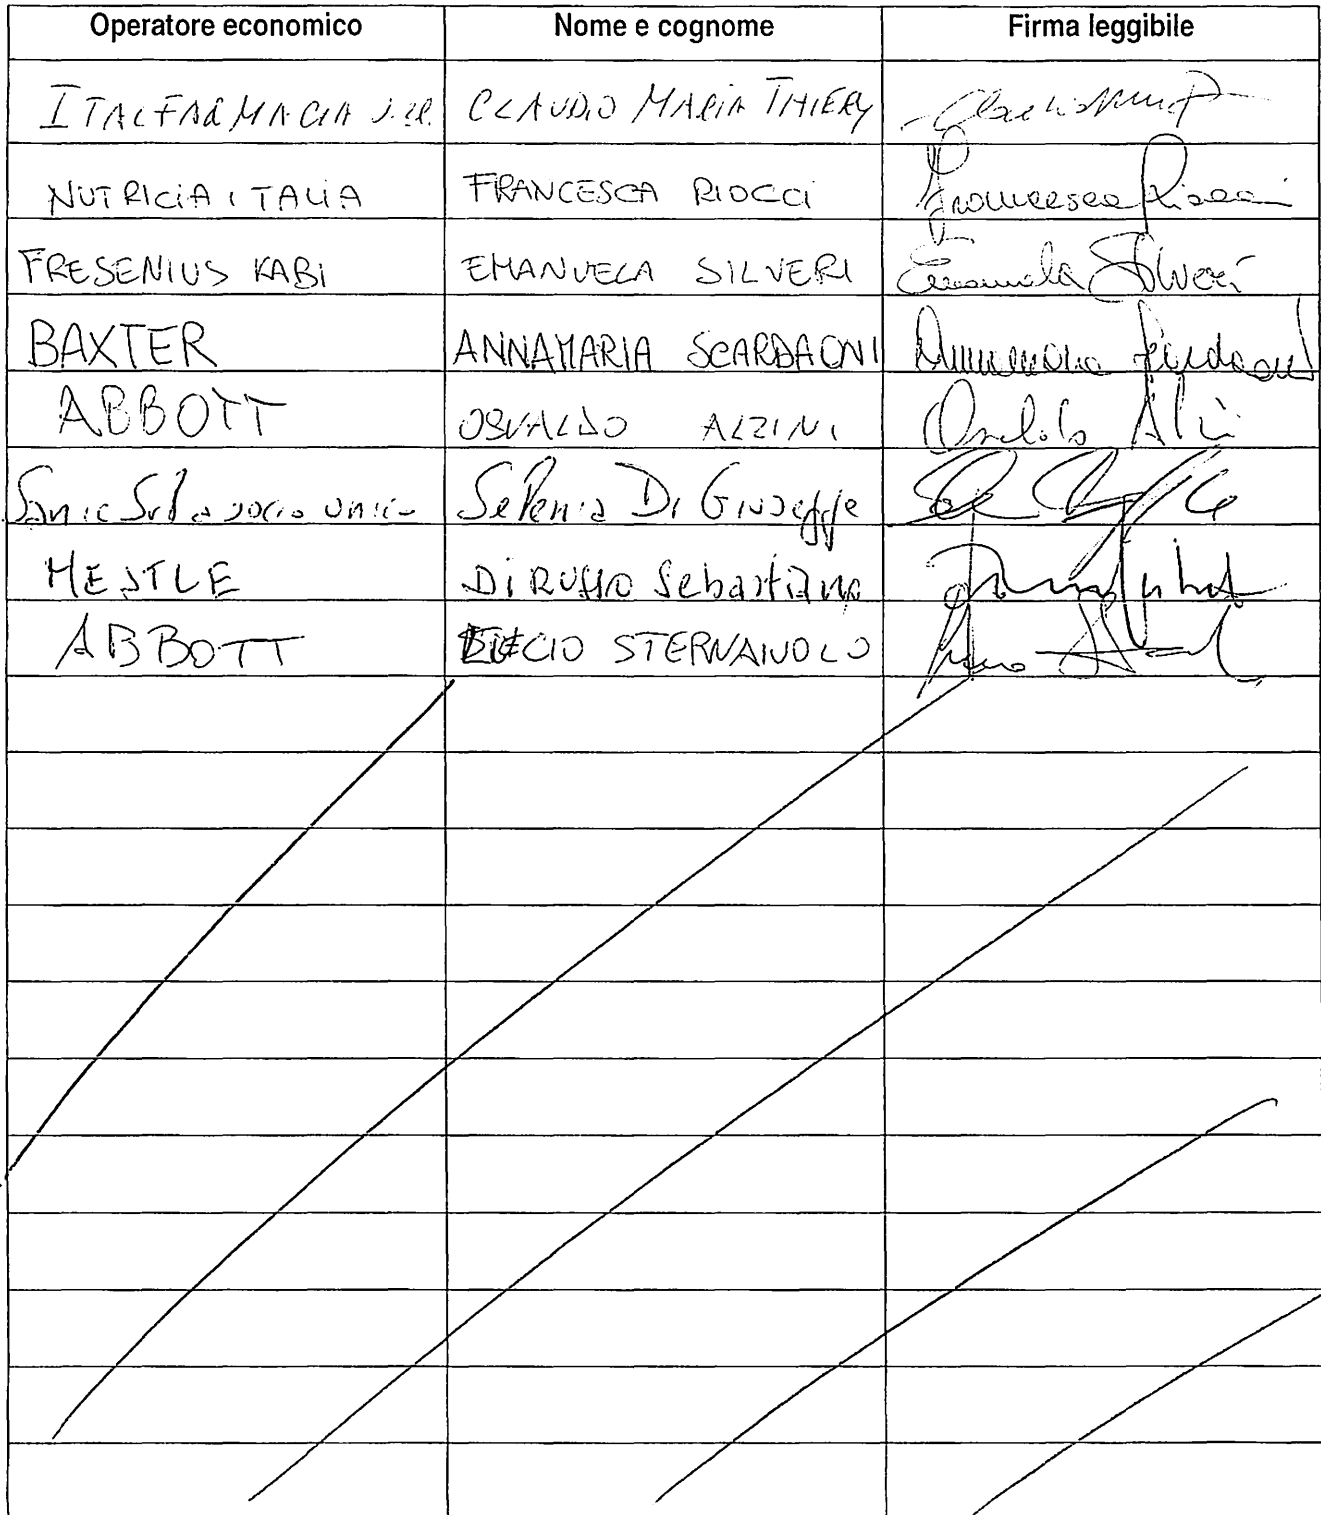 Operatore economico Nome e cognome Firma leggibile
ITALFARMACIA S.r.l. CLAUDIO MARIA THIERY
NUTRICIA ITALIA FRANCESCA RIOCCI Francesca Riocci
FRESENIUS KABI EMANUELA SILVERI Emanuela Silveri
BAXTER ANNAMARIA SCARDAONI Annamaria Scardaoni
ABBOTT OSVALDO ALZINI Osvaldo Alzini
Sanic Srl a socio unico Selenia Di Giuseppe
NESTLE Di RUSSO Sebastiano
ABBOTT STERNAIUOLO